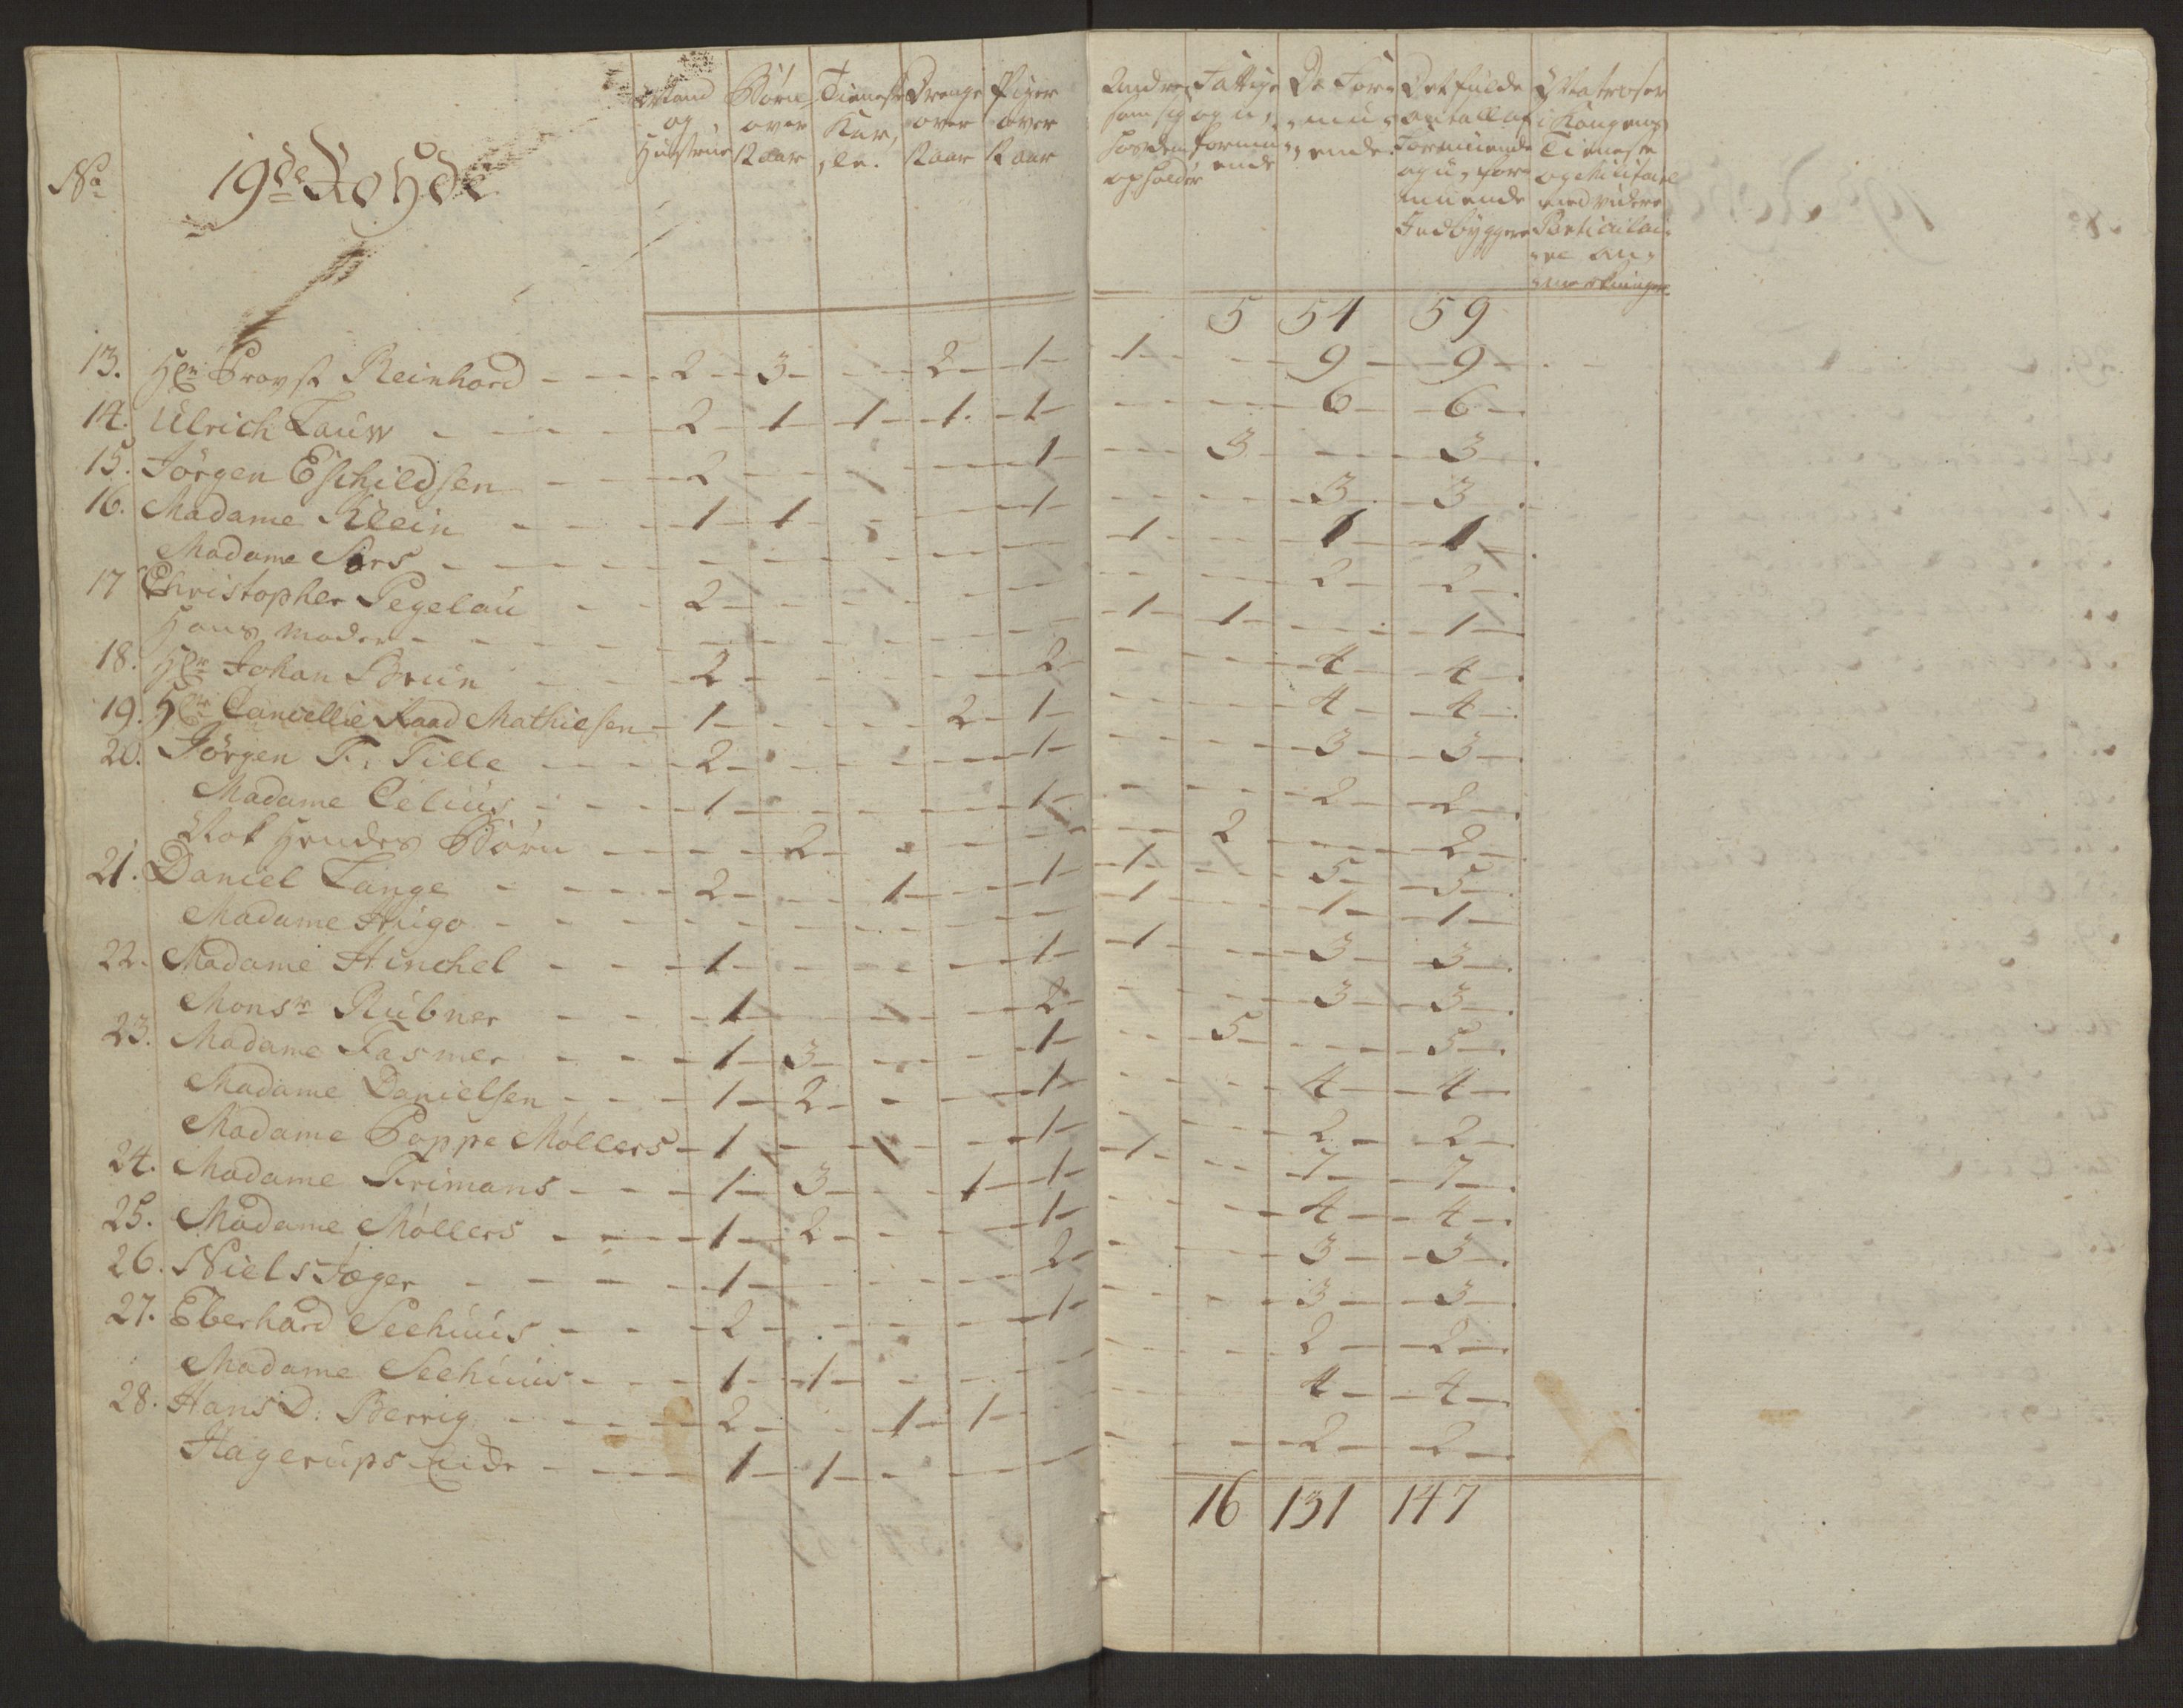 No
19de Rohde
Mand og Hustrue
Børn over 12 aar
Tieneste Kar, le.
Drenge over 12 aar
Piger over 12 aar
Andre som sig hos dem opholder
Fattige og u, formu ende
De For, mu, ende.
Det fulde Antall af Formuende og u, for muende Indbyggere
Matroser i Kongens Tieneste og Militaire med videre Particulai, re An, mærkninger
5 54 59
13. Hr Provst Reinhard - 2 - 3 - - 2 - 1 - 1 - - 9 - 9
14. Ulrich Lauw - 2 - 1 - 1 - 1 - 1 - - - 6 - 6
15. Jörgen Eschildsen - 2 - - - - 1 - - 3 - - 3
16. Madame Klein - 1 - 1 - - - 1 - - - 3 - 3
Madame Sørs - - - - - - 1 - - 1 - 1
17 Christopher Pegelau - 2 - - - - - - - 2 - 2
Hans Moder - - - - - - 1 - 1 - - 1
18. Hr Johan Brun - 2 - - - - 2 - - - 4 - 4
19. Hr Cancellie Raad Mathiesen - 1 - - - 2 - 1 - - - 4 - 4
20. Jörgen F. Tille - 2 - - - - 1 - - - 3 - 3
Madame Celius - 1 - - - - 1 - - - 2 - 2
Nok hendes Børn - - 2 - - - - - 2 - - 2
21. Daniel Lange - 2 - - 1 - - 1 - 1 - - 5 - 5
Madame Hugo - - - - - - 1 - - 1 - 1
22. Madame Hinchel - 1 - - - - 1 - 1 - - 3 - 3
Monsr Rubner - 1 - - - - 2 - - - 3 - 3
23. Madame Fasmer - 1 - 3 - - - 1 - - 5 - - 5
Madame Danielsen - 1 - 2 - - - 1 - - - 4 - 4
Madame Poppe Møllers - 1 - - - - 1 - - - 2 - 2
24. Madame Frimans - 1 - 3 - - 1 - 1 - 1 - - 7 - 7
25. Madame Møllers - 1 - 2 - - - 1 - - - 4 - 4
26. Niels Jæger - 1 - - - - 2 - - - 3 - 3
27. Eberhard Seehuus - 2 - - - - 1 - - - 3 - 3
Madame Seehuus - 1 - 1 - - - - - - 2 - 2
28. Hans D. Berrig - 2 - - 1 - 1 - - - - 4 - 4
Hagerups Enke - 1 - 1 - - - - - - 2 - 2
16 131 147